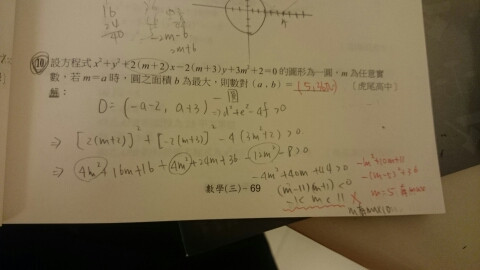 16
24
-40
2m-6
2m+6
10 設方程式 x²+y²+2(m+2)x-2(m+3)y+3m²+2=0 的圖形為一圓，m 為任意實
數，若 m=a 時，圓之面積 b 為最大，則數對 (a, b) = (虎尾高中)
解：
O=(-a-2, a+3) 一圓 ⇒ d²+e²-4f>0
⇒ [2(m+2)]²+[-2(m+3)]²-4(3m²+2)>0
⇒ 4m²+16m+16+4m²+24m+36-12m²-8>0
-4m²+40m+44>0
(m-11)(m+1)<0
-1<m<11
-m²+10m+11
-(m-5)²+36
m=5
數學(三)－69